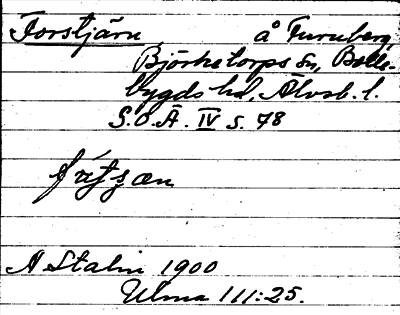 Forstjärn å Furuberg,
Björketorps sn, Bolle-
bygds hd, Älvsb. l.
S.O.Ä. IV s. 78
A Stalin 1900
Ulma 111:25.